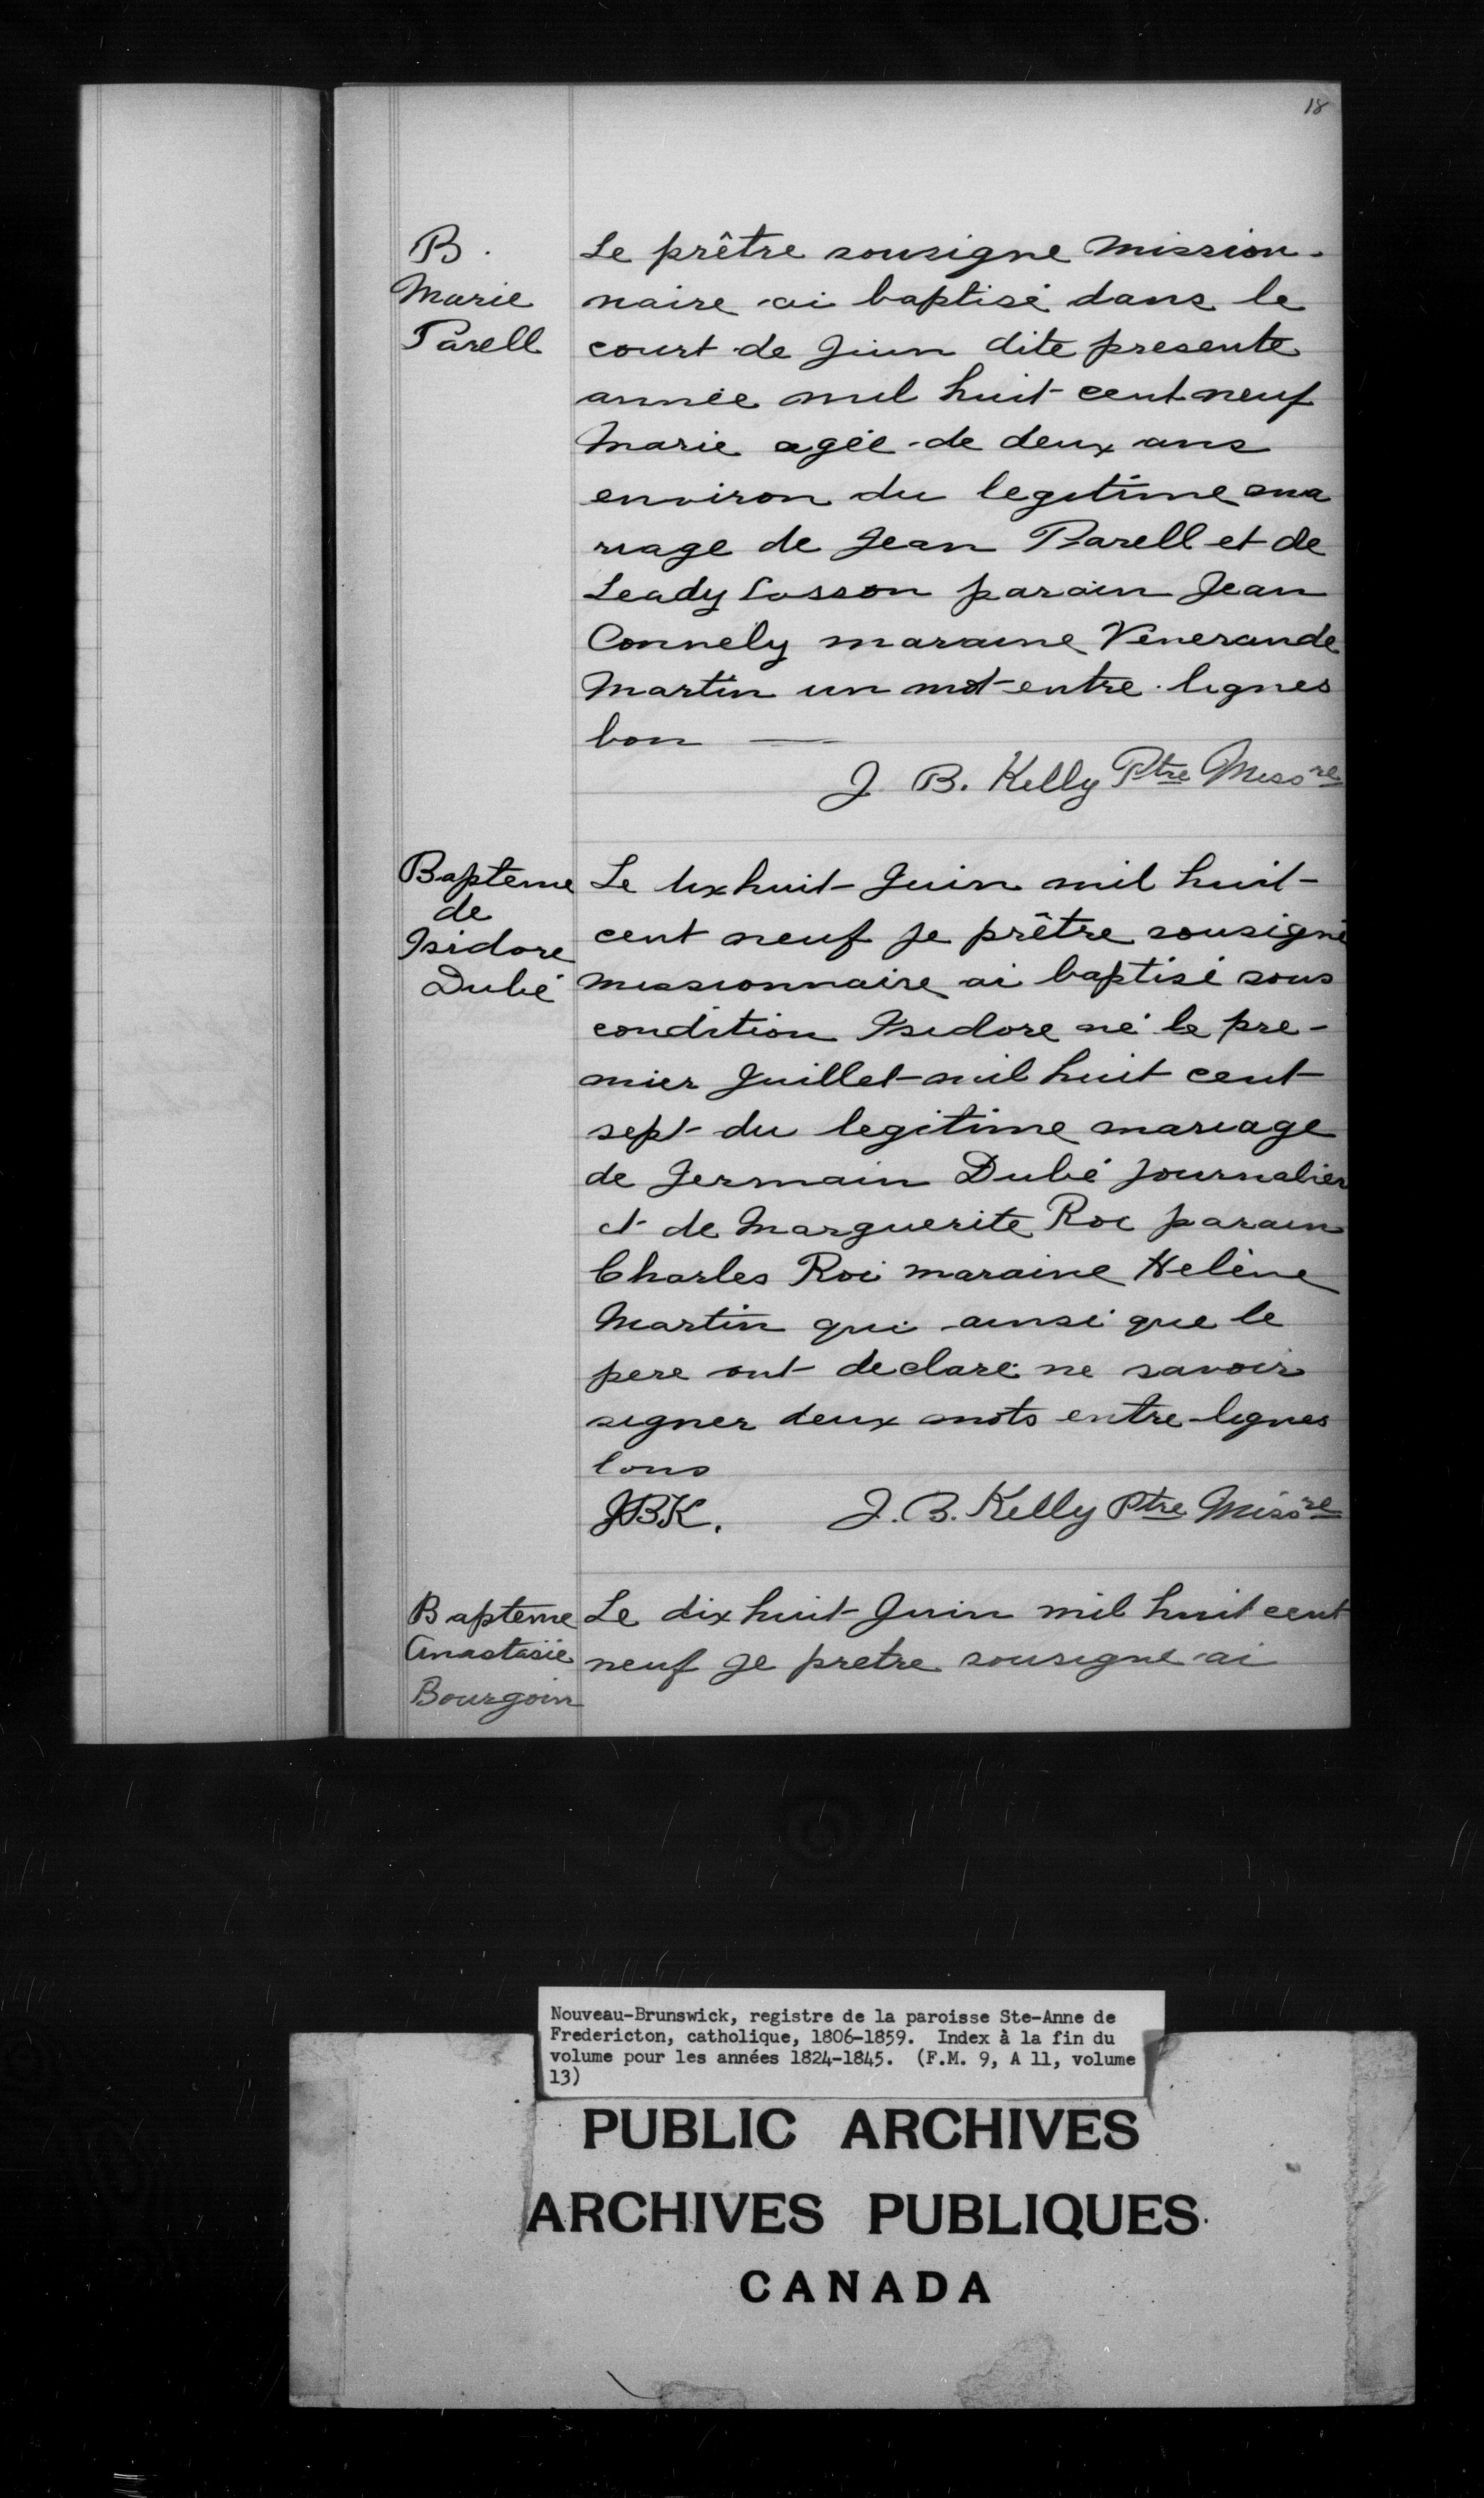 18
B.
Marie
Parell
Le prêtre sousigne mission-
naire ai baptisé dans le
court de Juin dite presente
année mil huit cent neuf
Marie agée de deux ans
environ du legitime ma
riage de Jean Parell et de
Leady Losson parain Jean
Connely maraine Venerande
Martin un mot entre lignes
bon —
J. B. Kelly Ptre Missre
Bapteme
de
Isidore
Dubé
Le dix huit Juin mil huit
cent neuf je prêtre sousigné
missionnaire ai baptisé sous
condition Isidore né le pre-
mier Juillet mil huit cent
sept du legitime mariage
de Germain Dubé journalier
et de Marguerite Roi parain
Charles Roi maraine Helène
Martin qui ainsi que le
pere ont declaré ne savoir
signer deux mots entre-lignes
bons
JBK. J. B. Kelly Ptre Missre
Bapteme
Anastasie
Bourgoin
Le dix huit Juin mil huit cent
neuf je pretre sousigne ai
Nouveau-Brunswick, registre de la paroisse Ste-Anne de
Fredericton, catholique, 1806-1859. Index à la fin du
volume pour les années 1824-1845. (F.M. 9, A 11, volume
13)
PUBLIC ARCHIVES
ARCHIVES PUBLIQUES
CANADA